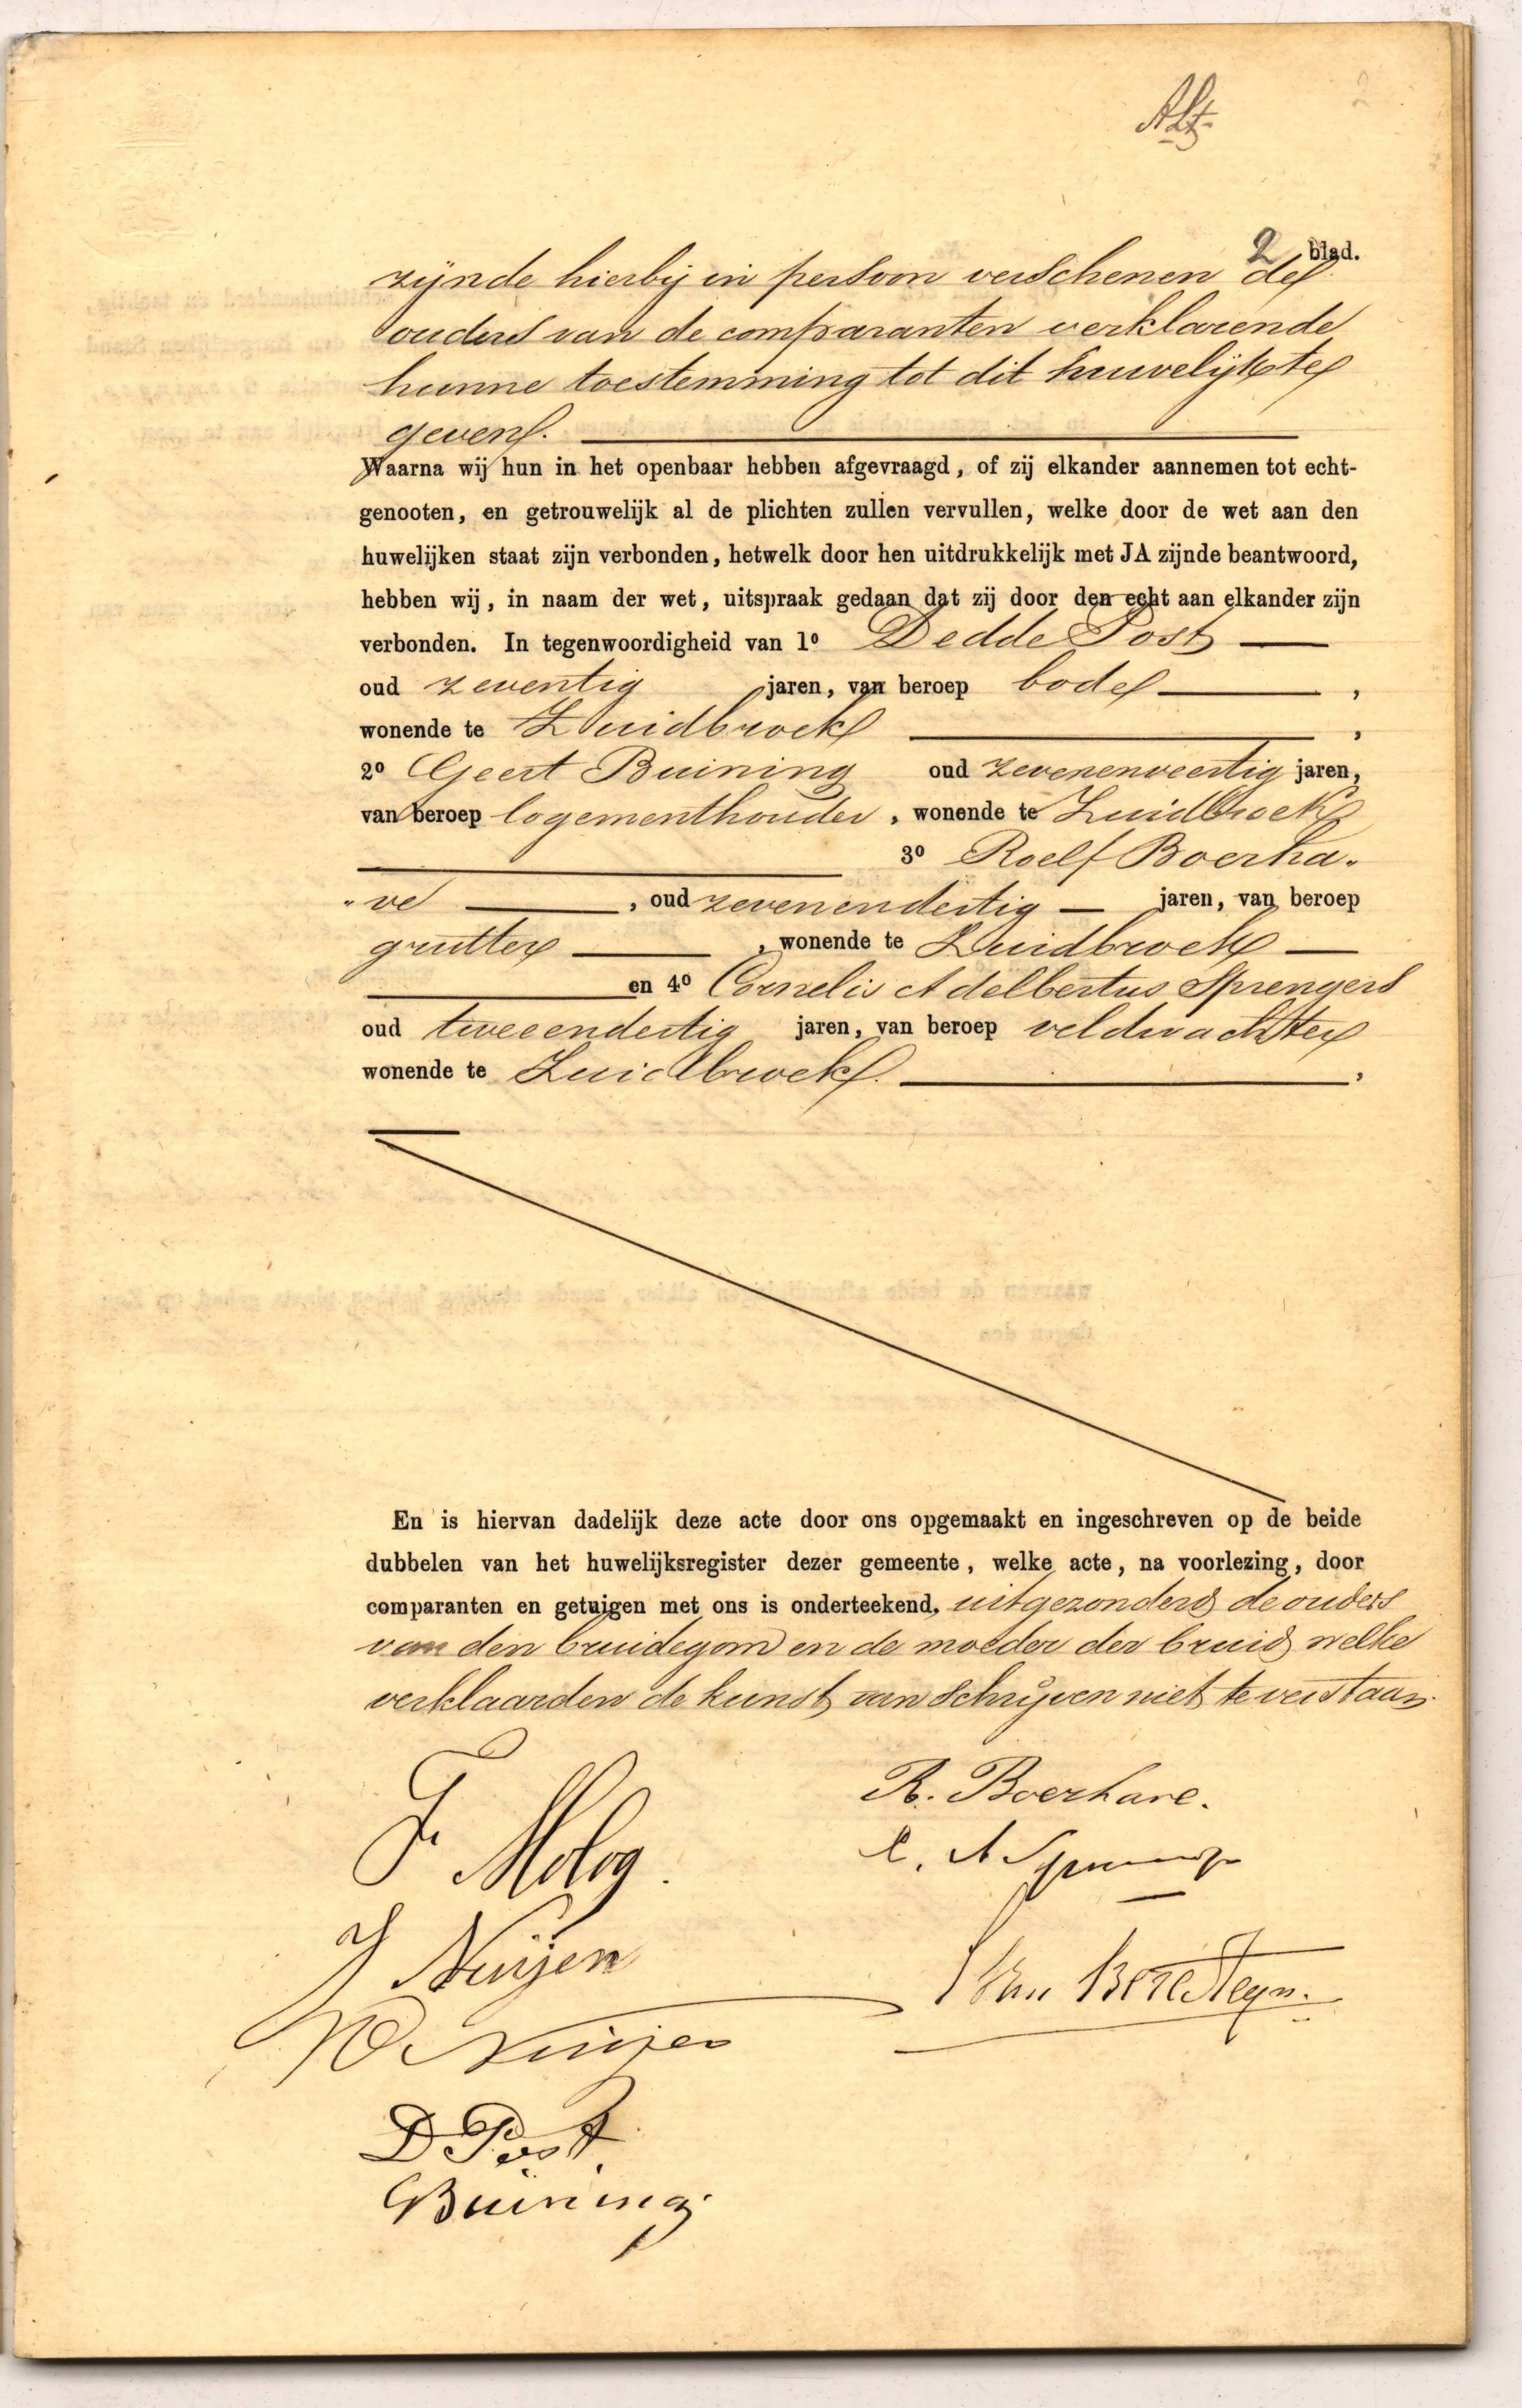 2 blad.
zijnde hierbij in persoon verschenen de
ouders van de comparanten verklarende
hunne toestemming tot dit huwelijk te
geven.
Waarna wij hun in het openbaar hebben afgevraagd, of zij elkander aannemen tot echt-
genooten, en getrouwelijk al de plichten zullen vervullen, welke door de wet aan den
huwelijken staat zijn verbonden, hetwelk door hen uitdrukkelijk met JA zijnde beantwoord,
hebben wij, in naam der wet, uitspraak gedaan dat zij door den echt aan elkander zijn
verbonden. In tegenwoordigheid van 1º Dedde Post
oud zeventig jaren, van beroep bode,
wonende te Zuidbroek,
2º Geert Buining oud zevenenveertig jaren,
van beroep logementhouder, wonende te Zuidbroek
3º Roelf Boerha-
"ve, oud zevenendertig jaren, van beroep
grutter, wonende te Zuidbroek
en 4º Cornelis Adelbertus Sprengers
oud tweeendertig jaren, van beroep veldwachter
wonende te Zuidbroek.,
En is hiervan dadelijk deze acte door ons opgemaakt en ingeschreven op de beide
dubbelen van het huwelijksregister dezer gemeente, welke acte, na voorlezing, door
comparanten en getuigen met ons is onderteekend, uitgezonderd de ouders
van den bruidegom en de moeder der bruid welke
verklaarden de kunst van schrijven niet te verstaan.
F Molog.
J Nuijen
Nuijen
D Post.
GBuining.
R. Boerhave.
C. A Sprengers
van Beresteyn.